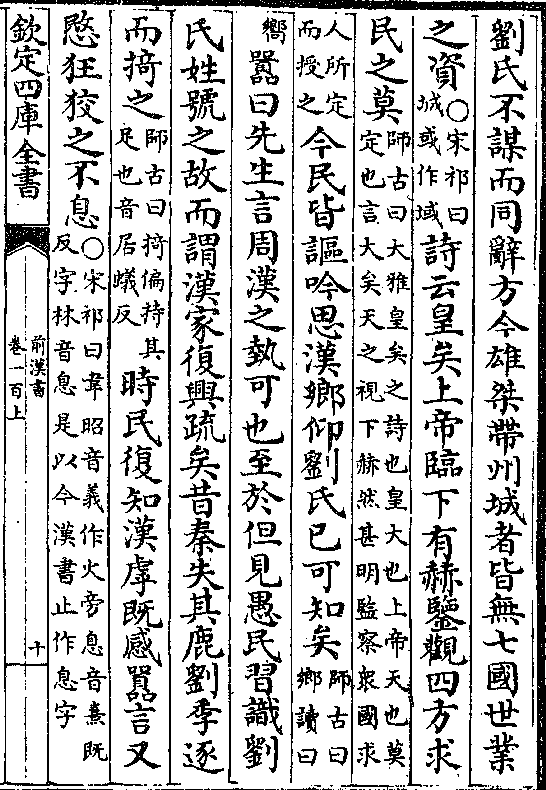 劉氏不謀而同辭方今雄桀帶州城者皆無七國世業
之資○宋祁曰城或作域詩云皇矣上帝臨下有赫鑒觀四方求
民之莫師古曰大雅皇矣之詩也皇大也上帝天也莫定也言大矣天之視下赫然甚明監察衆國求
人所定而授之今民皆謳吟思漢鄉仰劉氏已可知矣師古曰鄉讀曰
嚮囂曰先生言周漢之埶可也至於但見愚民習識劉
氏姓號之故而謂漢家復興疏矣昔秦失其鹿劉季逐
而掎之師古曰掎偏持其足也音居蟻反時民復知漢虖既感囂言又
愍狂狡之不息○宋祁曰韋昭音義作火旁息音熹既反字林音息是以今漢書止作息字
欽定四庫全書
前漢書
卷一百上
十